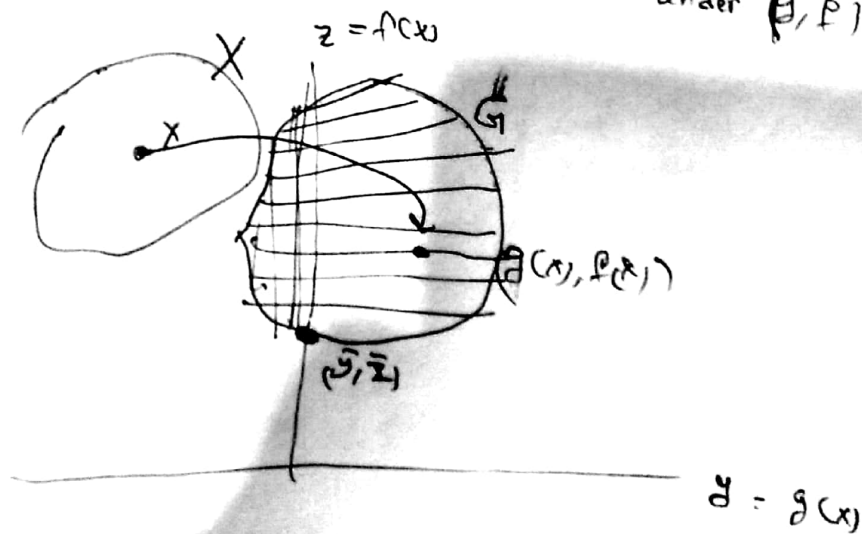 under (g, f)
z = f(x)
X
x
G
g(x), f(x))
(ȳ, z̄)
y = g(x)